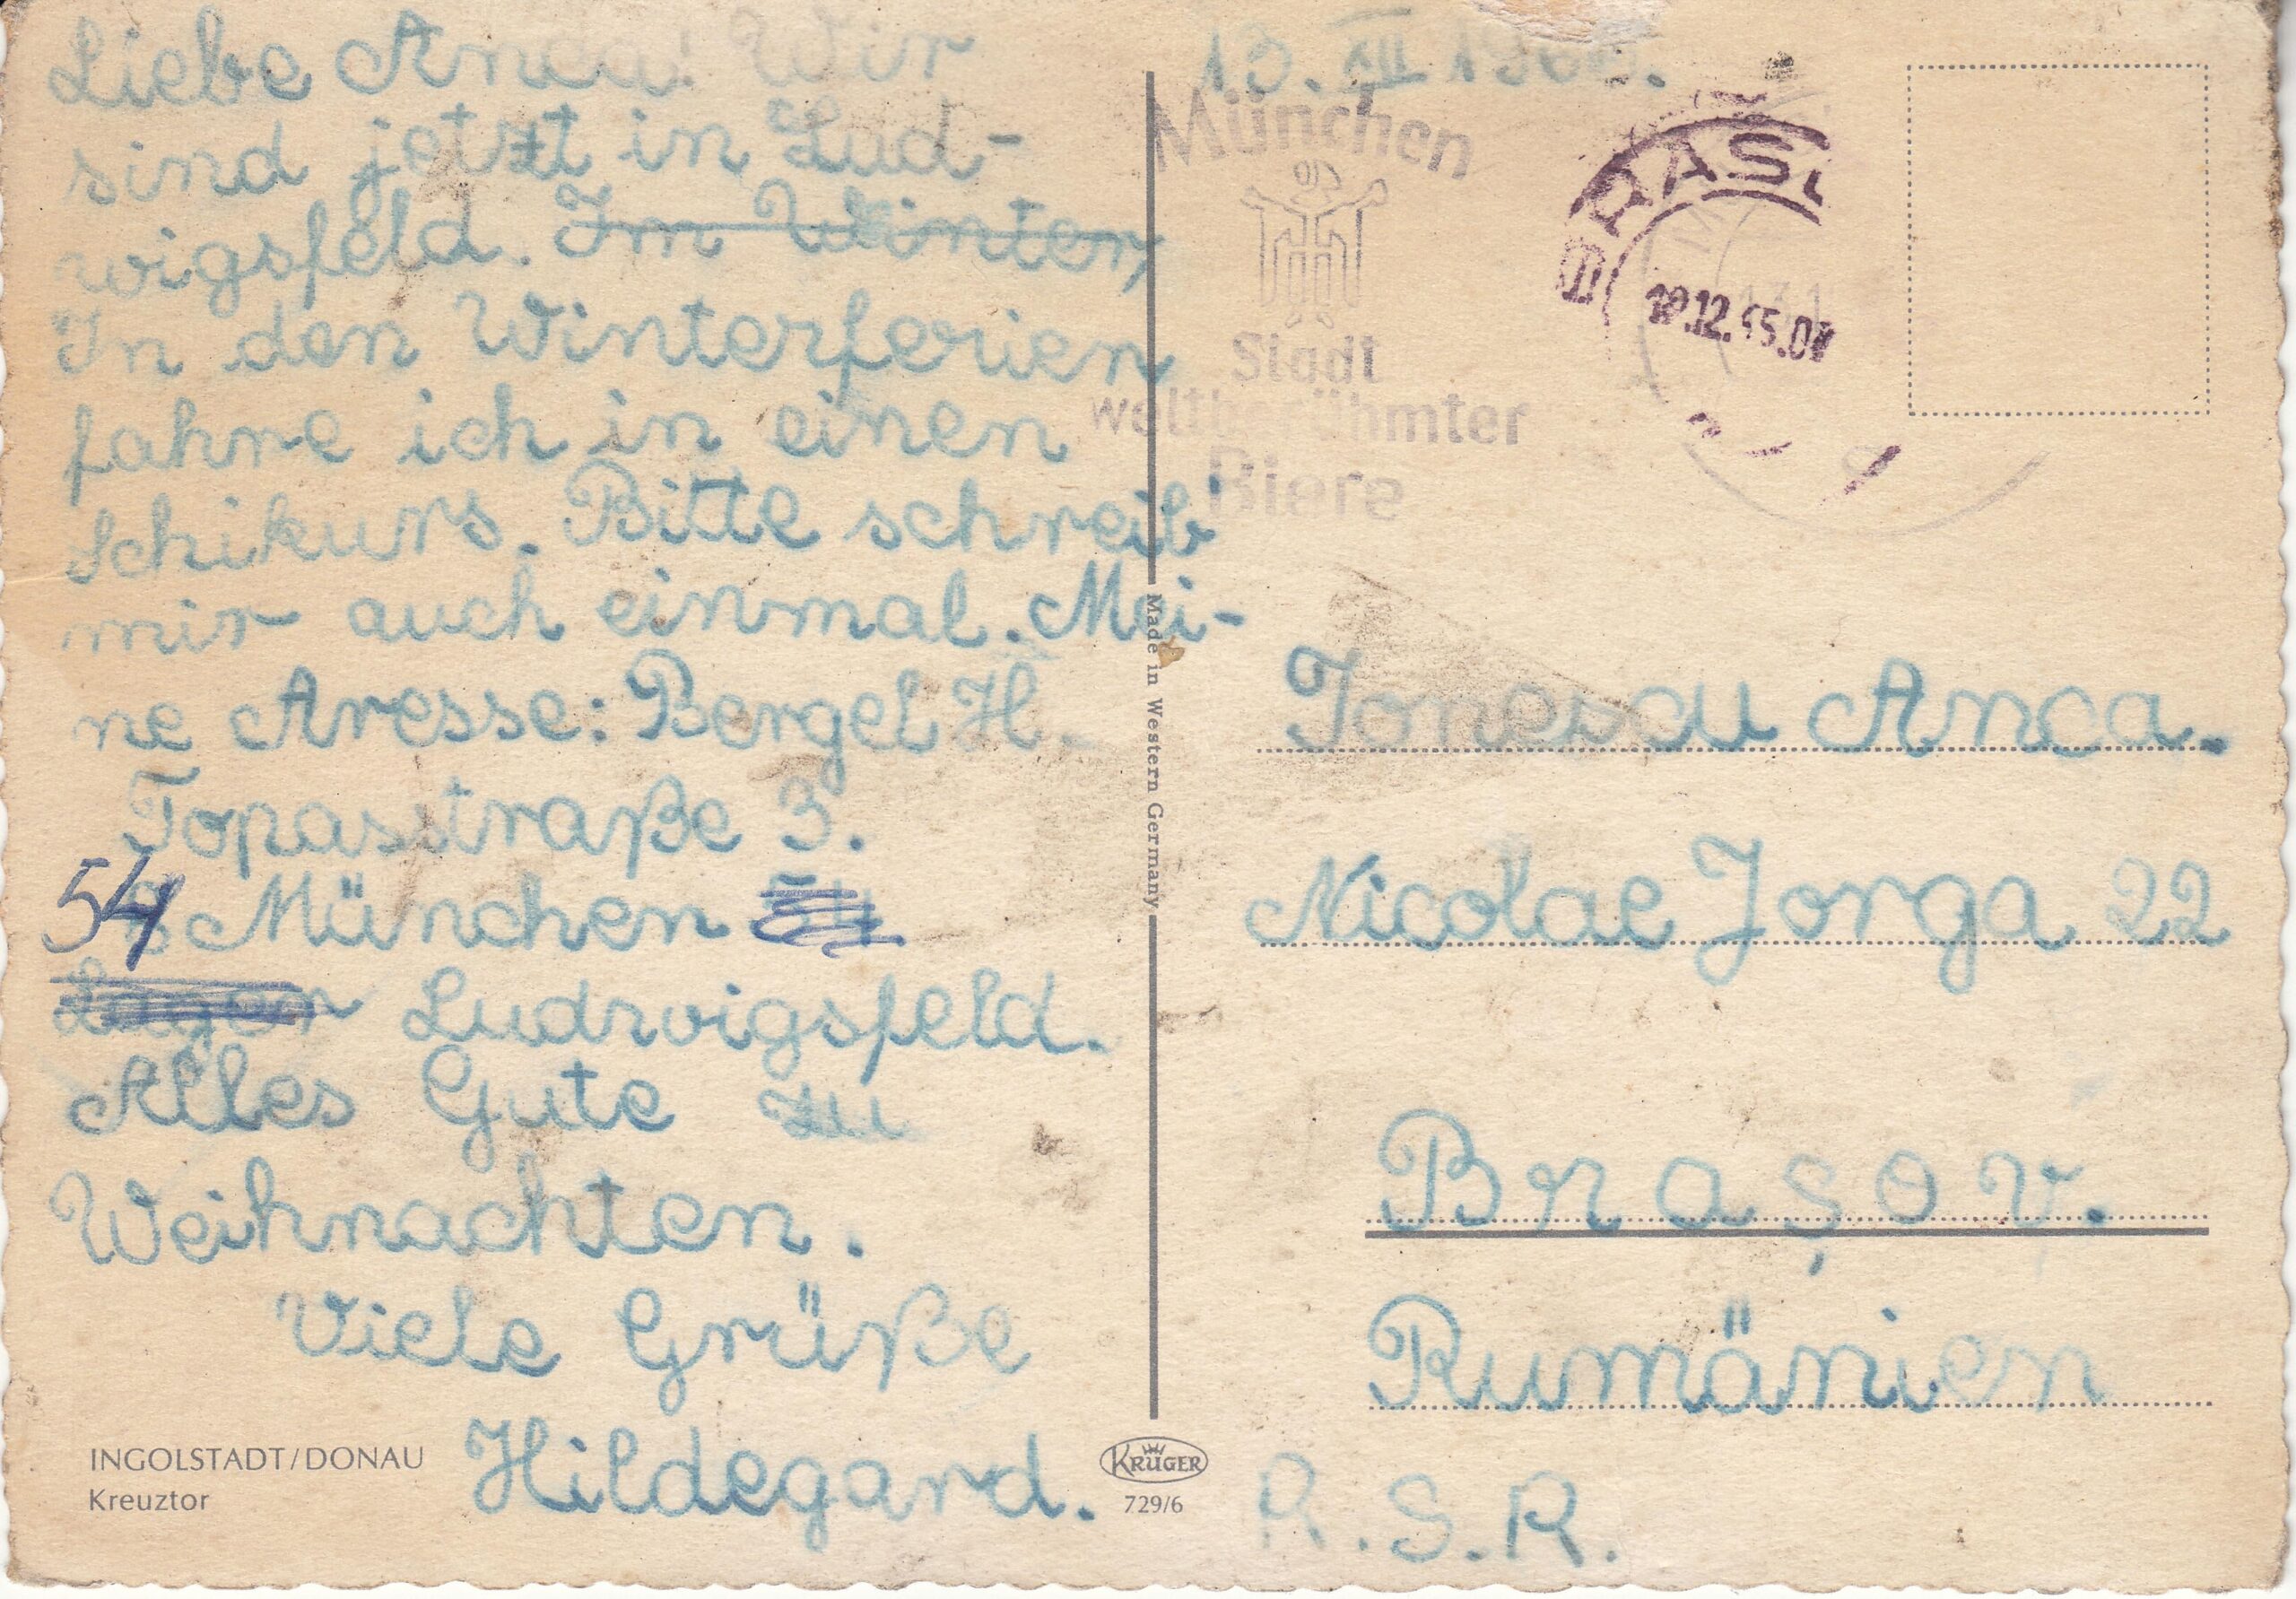 Liebe Anca! Wir
sind jetzt in Lud-
wigsfeld. Im Winter,
In den Winterferien
fahre ich in einen
Schikurs. Bitte schreib
mir auch einmal. Mei-
ne Aresse: Bergel H.
Topasstraße 3.
54 München
Lager Ludwigsfeld.
Alles Gute zu
Weihnachten.
Viele Grüße
Hildegard.
INGOLSTADT/DONAU
Kreuztor
Made in Western Germany
KRÜGER
729/6
13. XII
München
Stadt
weltberühmter
Biere
Ionescu Anca.
Nicolae Jorga 22
Brașov.
Rumänien
R.S.R.